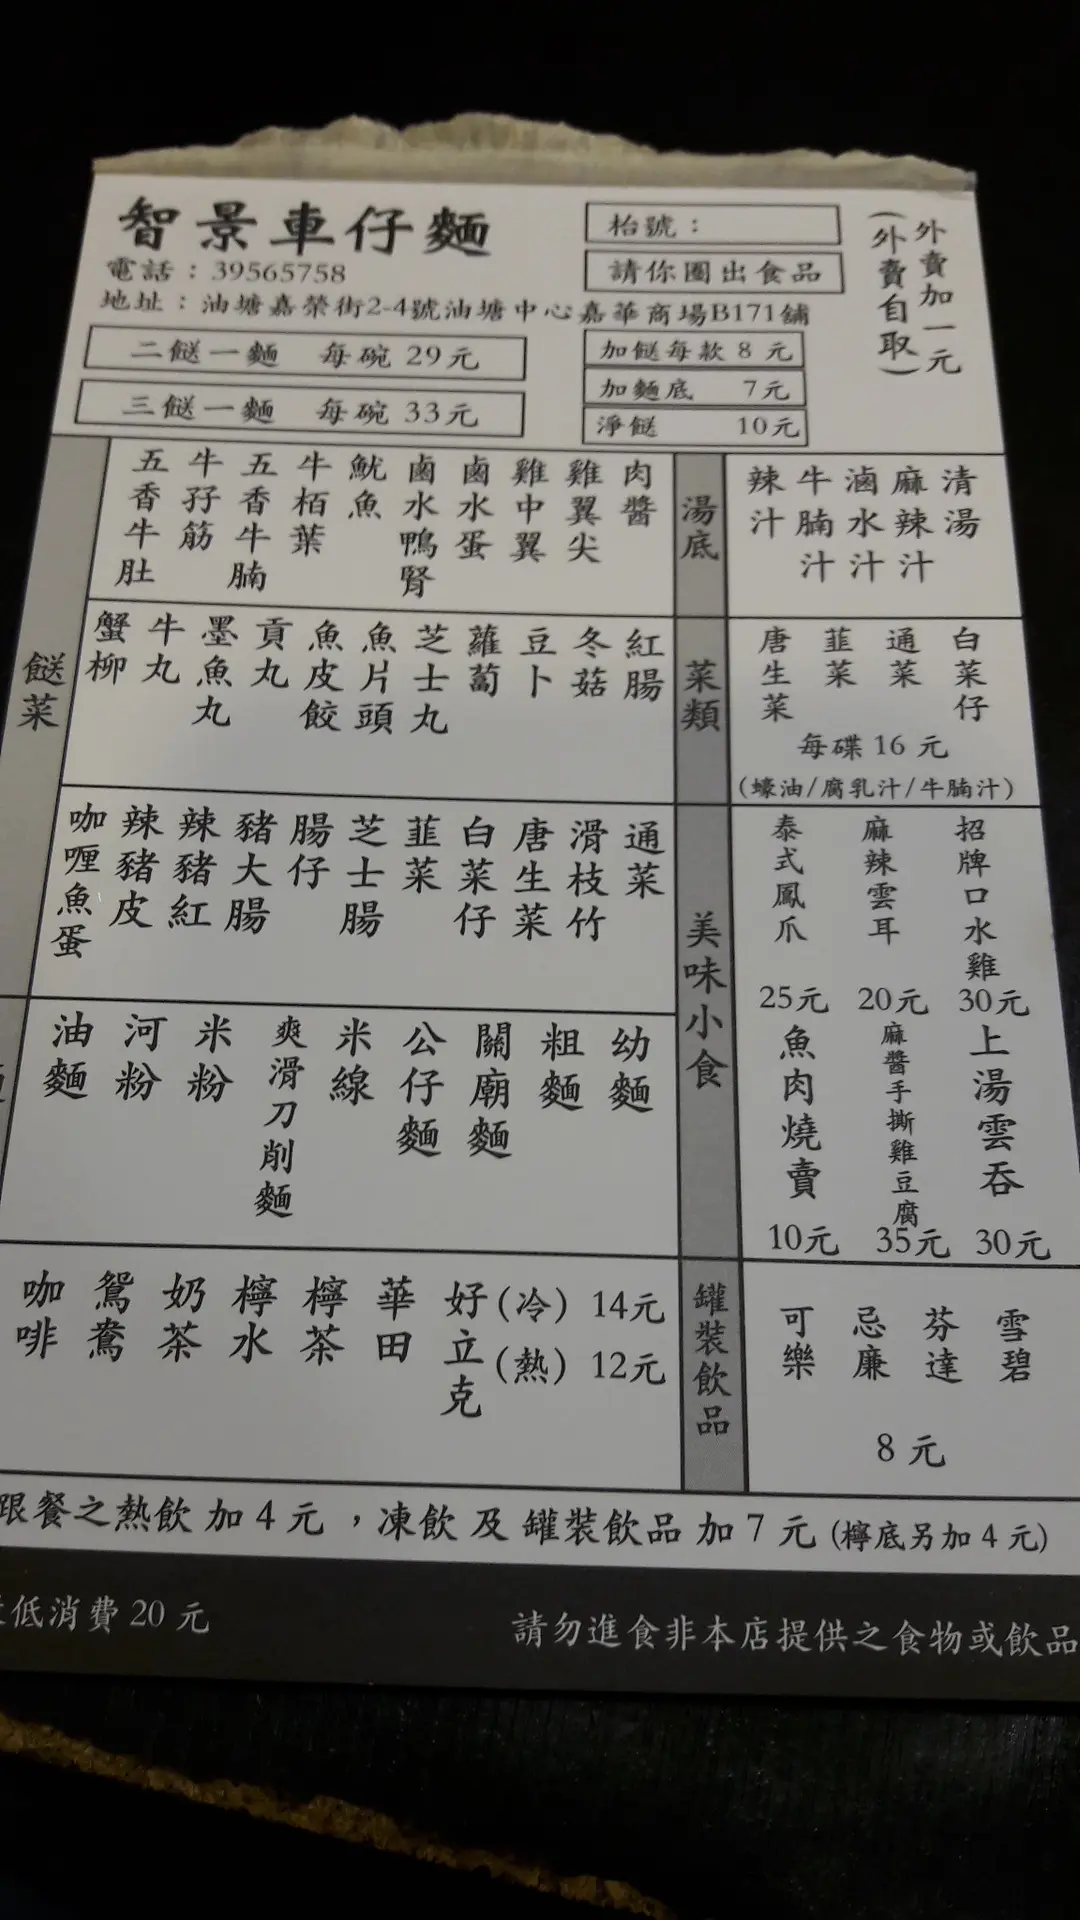 智景車仔麵
電話：39565758
地址：油塘嘉榮街2-4號油塘中心嘉華商場B171舖
枱號：
請你圈出食品
外賣加一元
(外賣自取)
二餸一麵 每碗 29元
三餸一麵 每碗 33元
加餸每款 8 元
加麵底 7元
淨餸 10元
餸菜
五香牛肚
牛孖筋
五香牛腩
牛栢葉
魷魚
鹵水鴨腎
鹵水蛋
雞中翼
雞翼尖
肉醬
蟹柳
牛丸
墨魚丸
貢丸
魚皮餃
魚片頭
芝士丸
蘿蔔
豆卜
冬菇
紅腸
咖喱魚蛋
辣豬皮
辣豬紅
豬大腸
腸仔
芝士腸
韮菜
白菜仔
唐生菜
滑枝竹
通菜
油麵
河粉
米粉
爽滑刀削麵
米線
公仔麵
關廟麵
粗麵
幼麵
咖啡
鴛鴦
奶茶
檸水
檸茶
華田
好立克
(冷) 14元
(熱) 12元
湯底
辣汁
牛腩汁
滷水汁
麻辣汁
清湯
菜類
唐生菜
韮菜
通菜
白菜仔
每碟 16 元
(蠔油/腐乳汁/牛腩汁)
美味小食
泰式鳳爪
25元
麻辣雲耳
20元
招牌口水雞
30元
魚肉燒賣
10元
麻醬手撕雞豆腐
35元
上湯雲吞
30元
罐裝飲品
可樂
忌廉
芬達
雪碧
8 元
跟餐之熱飲加 4 元，凍飲及罐裝飲品加 7 元 (檸底另加 4 元)
低消費 20 元
請勿進食非本店提供之食物或飲品